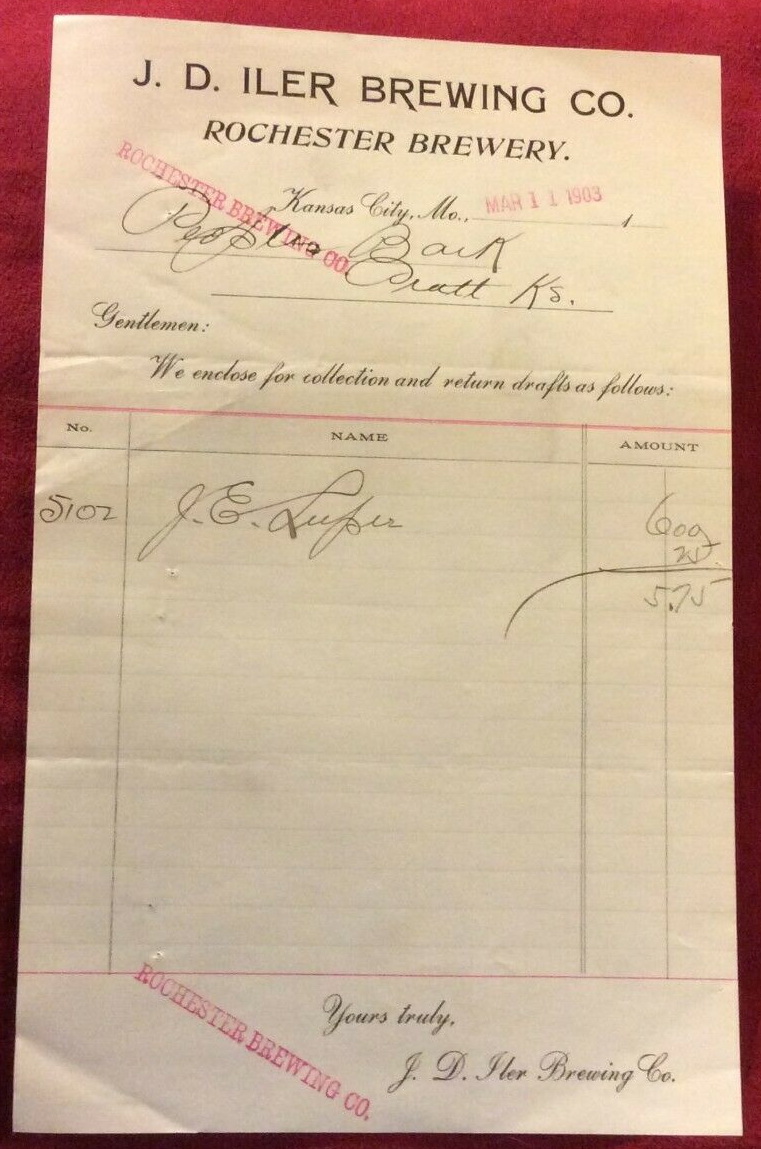 J. D. ILER BREWING CO.
ROCHESTER BREWERY.
ROCHESTER BREWING CO.
Kansas City, Mo., MAR 11 1903 1
Peoples Bank
Pratt Ks.
Gentlemen:
We enclose for collection and return drafts as follows:
No. NAME AMOUNT
5102 J. E. Luper 600
25
5.75
Yours truly,
J. D. Iler Brewing Co.
ROCHESTER BREWING CO.